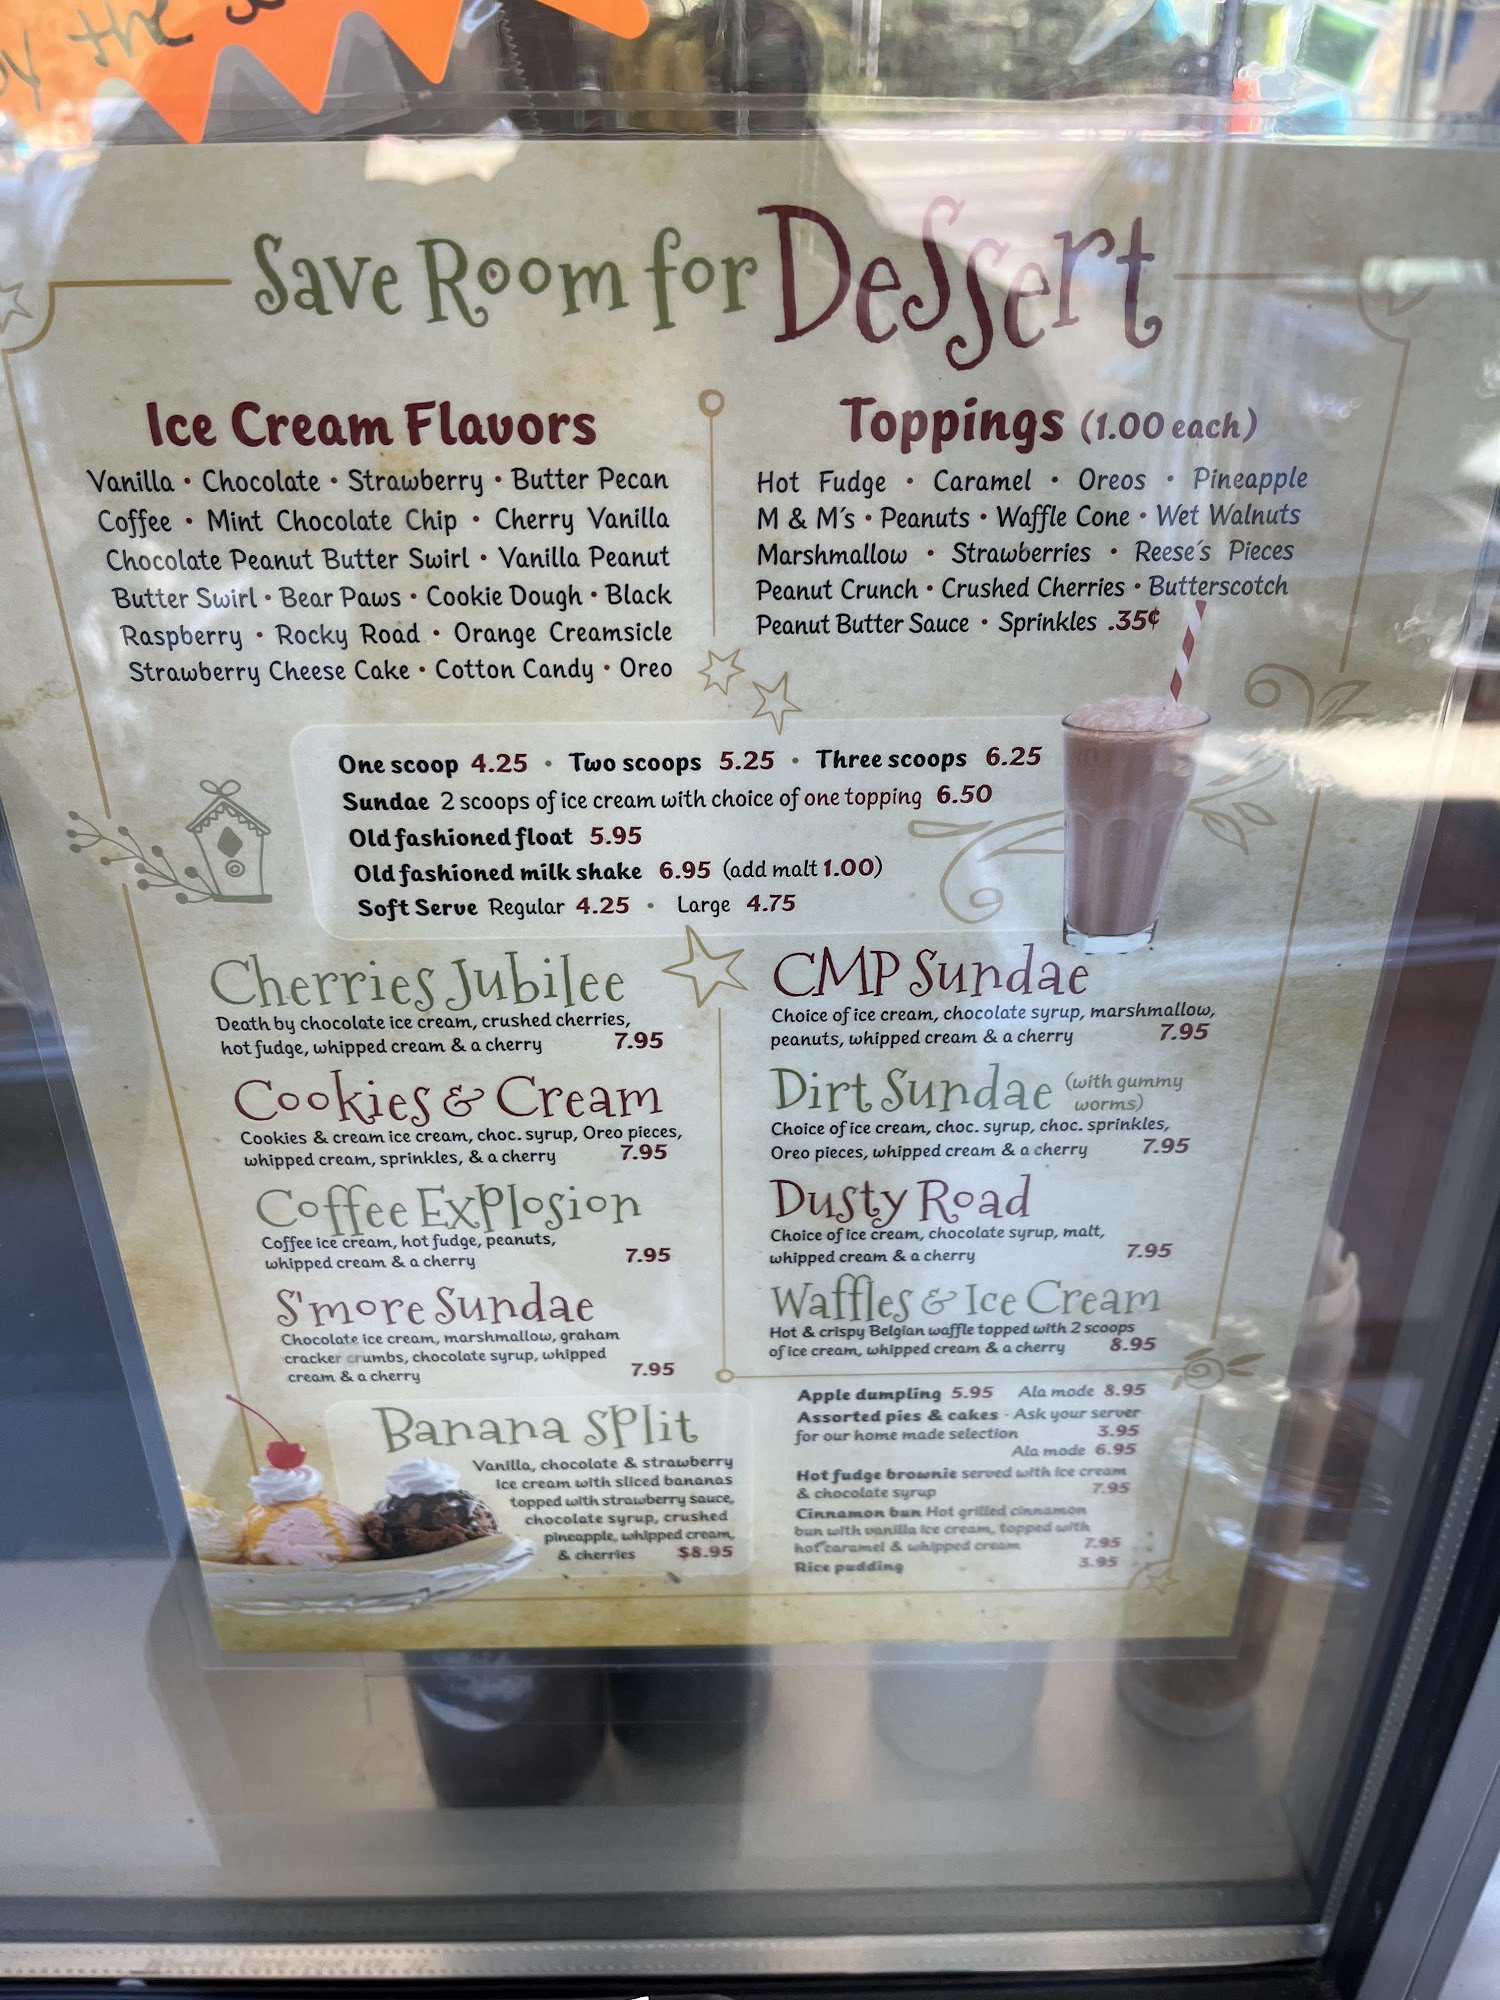 the
Save Room for Dessert
Ice Cream Flavors
Vanilla • Chocolate • Strawberry • Butter Pecan
Coffee • Mint Chocolate Chip • Cherry Vanilla
Chocolate Peanut Butter Swirl • Vanilla Peanut
Butter Swirl • Bear Paws • Cookie Dough • Black
Raspberry • Rocky Road • Orange Creamsicle
Strawberry Cheese Cake • Cotton Candy • Oreo
Toppings (1.00 each)
Hot Fudge • Caramel • Oreos • Pineapple
M & M's • Peanuts • Waffle Cone • Wet Walnuts
Marshmallow • Strawberries • Reese's Pieces
Peanut Crunch • Crushed Cherries • Butterscotch
Peanut Butter Sauce • Sprinkles .35¢
One scoop 4.25 • Two scoops 5.25 • Three scoops 6.25
Sundae 2 scoops of ice cream with choice of one topping 6.50
Old fashioned float 5.95
Old fashioned milk shake 6.95 (add malt 1.00)
Soft Serve Regular 4.25 • Large 4.75
Cherries Jubilee
Death by chocolate ice cream, crushed cherries,
hot fudge, whipped cream & a cherry 7.95
Cookies & Cream
Cookies & cream ice cream, choc. syrup, Oreo pieces,
whipped cream, sprinkles, & a cherry 7.95
Coffee Explosion
Coffee ice cream, hot fudge, peanuts,
whipped cream & a cherry 7.95
S'more Sundae
Chocolate ice cream, marshmallow, graham
cracker crumbs, chocolate syrup, whipped
cream & a cherry 7.95
Banana Split
Vanilla, chocolate & strawberry
Ice cream with sliced bananas
topped with strawberry sauce,
chocolate syrup, crushed
pineapple, whipped cream,
& cherries $8.95
CMP Sundae
Choice of ice cream, chocolate syrup, marshmallow,
peanuts, whipped cream & a cherry 7.95
Dirt Sundae (with gummy
worms)
Choice of ice cream, choc. syrup, choc. sprinkles,
Oreo pieces, whipped cream & a cherry 7.95
Dusty Road
Choice of ice cream, chocolate syrup, malt,
whipped cream & a cherry 7.95
Waffles & Ice Cream
Hot & crispy Belgian waffle topped with 2 scoops
of ice cream, whipped cream & a cherry 8.95
Apple dumpling 5.95 Ala mode 8.95
Assorted pies & cakes - Ask your server
for our home made selection 3.95
Ala mode 6.95
Hot fudge brownie served with ice cream
& chocolate syrup 7.95
Cinnamon bun Hot grilled cinnamon
bun with vanilla ice cream, topped with
hot caramel & whipped cream 7.95
Rice pudding 3.95